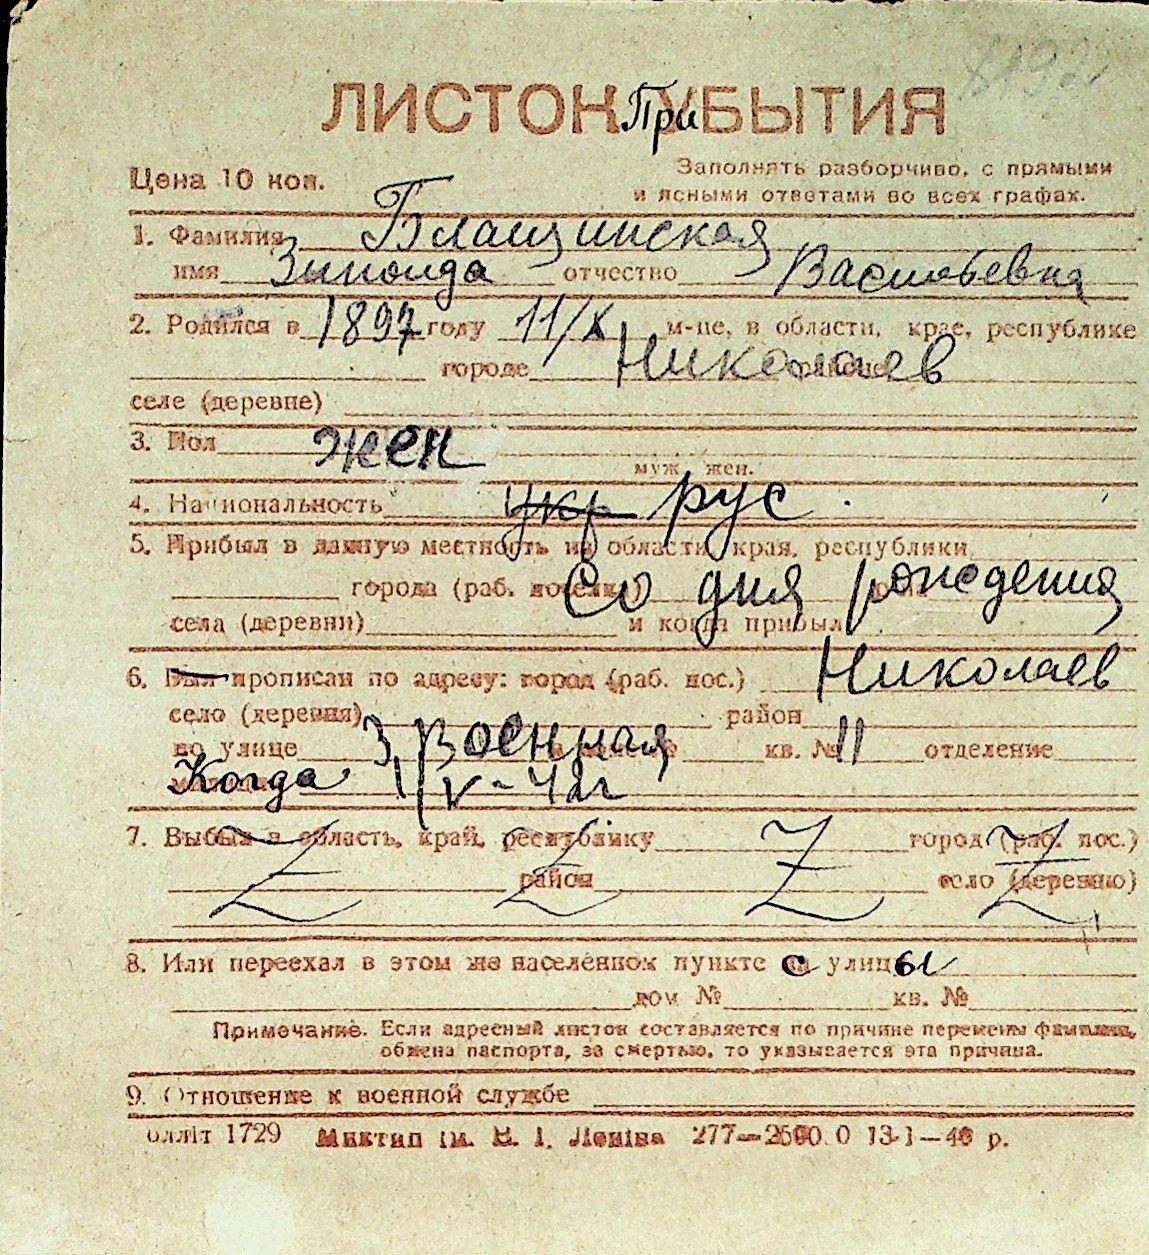 ЛИСТОК При УБЫТИЯ
Цена 10 коп.
Заполнять разборчиво, с прямыми
и ясными ответами во всех графах.
1. Фамилия Блащинская
имя Зиноида отчество Васильевна
2. Родился в 1897 году 11/X м-це, в области, крае, республике
городе Николаев районе
селе (деревне)
3. Пол жен
муж жен.
4. Национальность укр рус.
5. Прибыл в данную местность из области, края, республики
города (раб. поселка) Со дня рождения
села (деревни) и когда прибыл
6. Был прописан по адресу: город (раб. пос.) Николаев
село (деревня) район
по улице 3, Военная кв. № 11 отделение
Когда 1/V-42г
7. Выбыл в область, край, республику город (раб. пос.)
район село (деревню)
8. Или переехал в этом же населённом пункте с улицы
дом № кв. №
Примечание. Если адресный листок составляется по причине перемены фамилии,
обмена паспорта, за смертью, то указывается эта причина.
9. Отношение к военной службе
олліт 1729 Миктип ім. В. І. Леніна 277—2500.0 13-1—40 р.